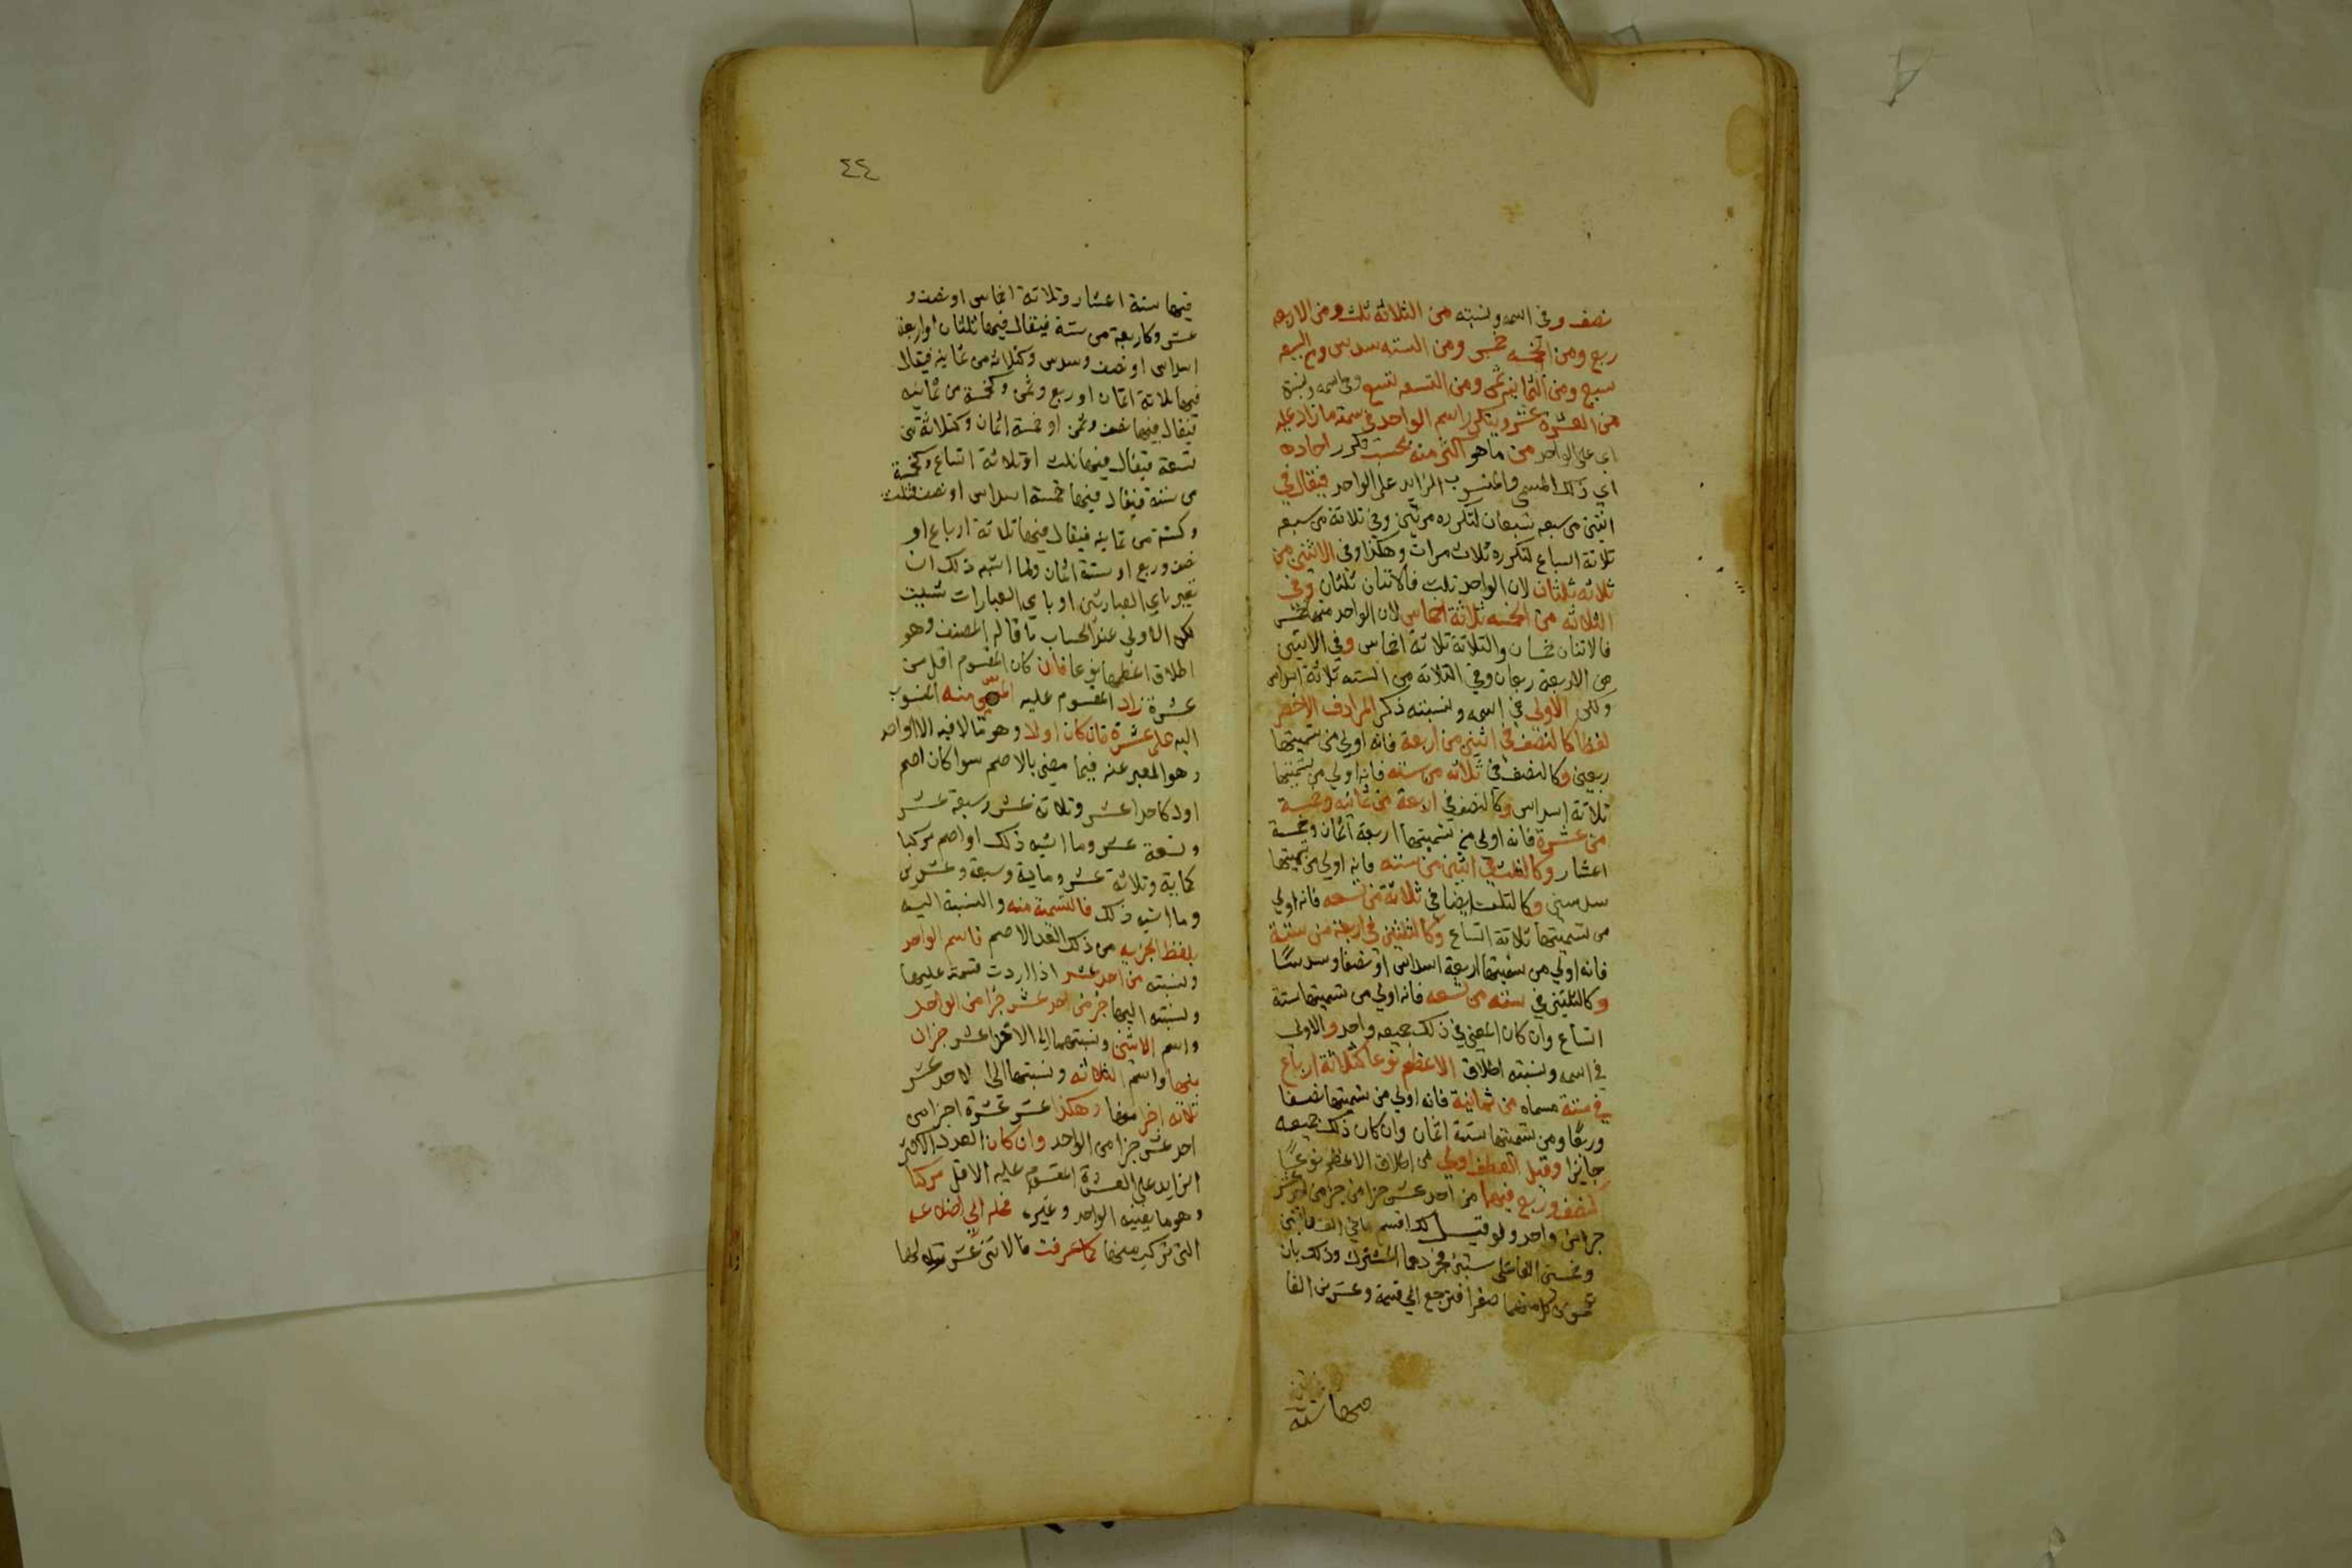 نصف وفي اسمه ونسبته من الثلاثة ثلث ومن الاربعه
ربع ومن الخمسه خمس ومن السته سدس ومن السبعه
سبع ومن الثمانيه ثمن ومن التسعه تسع وفي اسمه ونسبته
من العشرة عشر ويتكرر اسم الواحد في تسمية ما زاد عليه
اي على الواحد من ما هو اكثر منه بحسب تكرر احاده
اي ذلك المسمى والمنسوب الزايد على الواحد فيقال في
اثنين من سبعه سبعان لتكرره مرتين وفي ثلاثة من سبعه
ثلاثة اسباع لتكرره ثلاث مرات وهكذا وفي الاثنين من
ثلاثه ثلثان لان الواحد ثلث فالاثنان ثلثان وفي
الثلاثه من الخمسه ثلاثة اخماس لان الواحد منها خمس
فالاثنان خمسان والثلاثة ثلاثة اخماس وفي الاثنين
من الاربعة ربعان وفي الثلاثة من السته ثلاثة اسداس
ولكن الاولى في اسمه ونسبته ذكر المرادف الاخصر
لفظا كالنصف في اثنين من اربعة فانه اولى من تسميتها
ربعين وكالنصف في ثلاثه من سته فانه اولى من تسميتها
ثلاثة اسداس وكالنصف في اربعة من ثمانيه وخمسة
من عشرة فانه اولى من تسميتها اربعة اثمان وخمسة
اعشار وكالثلث في اثنين من سته فانه اولى من تسميتها
سدسين وكالثلث ايضا في ثلاثة من تسعه فانه اولى
من تسميتها ثلاثة اتساع وكالثلثين في اربعة من ستة
فانه اولى من تسميتها اربعة اسداس او نصفا وسدسًا
وكالثلثين في سته من تسعه فانه اولى من تسميتها ستة
اتساع وان كان المعنى في ذلك جميعه واحد والاولى
في اسمه ونسبته اطلاق الاعظم نوعا كثلاثة ارباع
في ستة مسماه من ثمانية فانه اولى من تسميتها نصفا
وربعًا ومن تسميتها ستة اثمان وان كان ذلك جميعه
جايزا وقيل العطف اولى من اطلاق الاعظم نوعًا
كنصف وربع فيهما من احد عشر جزا من جزا من احد عشر
جزا من واحد ولو قيل لك اقسم مايتي الف
وخمسين الفا على ستين فجردهما المشترك وذلك بان
منهما صفرا فترجع الى قسمة وعشرين الفا
فيها ستة اعشار وثلاثة اخماس او نصف و
عشر وكاربعة من ستة فيقال فيها ثلثان او اربعة
اسداس او نصف وسدس وكثلاثة من ثمانية فيقال
فيها ثلاثة اثمان او ربع وثمن وكخمسة من ثمانية
فيقال فيها نصف وثمن او خمسة اثمان وكثلاثة من
تسعة فيقال فيها ثلث او ثلاثة اتساع وكخمسة
من ستة فيقال فيها خمسة اسداس او نصف وثلث
وكستة من ثمانيه فيقال فيها ثلاثة ارباع او
نصف وربع او ستة اثمان ولما اشبه ذلك ان
تعبر باي العبارتين او باي العبارات شيت
لكن الاولى عند الحساب ما قاله المصنف وهو
اطلاق اعظمها نوعا فان كان المقسوم اقل من
عشرة زاد المقسوم عليه المسمى منه المنسوب
اليه على عشرة فان كان اولا وهو مالا فيه الا الواحد
وهو المعبر عنه فيما مضى بالاصم سوا كان اصم
اول كاحد عشر وثلاثة عشر وسبعة عشر
وتسعة عشر وما اشبه ذلك او اصم مركبا
كماية وثلاثة عشر وماية وسبعة وعشرين
وما اشبه ذلك فالتسمية منه والنسبة اليه
بلفظ الجزيه من ذلك العدد الاصم فاسم الواحد
ونسبته من احد عشر اذا اردت قسمته عليها
ونسبته اليها جزء من احد عشر جزا من الواحد
واسم الاثنين ونسبتهما الى الاحد عشر جزان
منها واسم الثلاثه ونسبتها الى الاحد عشر
ثلاثه اجزا منها وهكذا عشرة اجزا من
احد عشر جزا من الواحد وان كان العدد الاكثر
الزايد على العشرة المقسوم عليه الاقل مركبا
وهو ما يفنيه الواحد وغيره فحله الى اضلاعه
التي تركب منها كما عرفت فالاثنى عشر